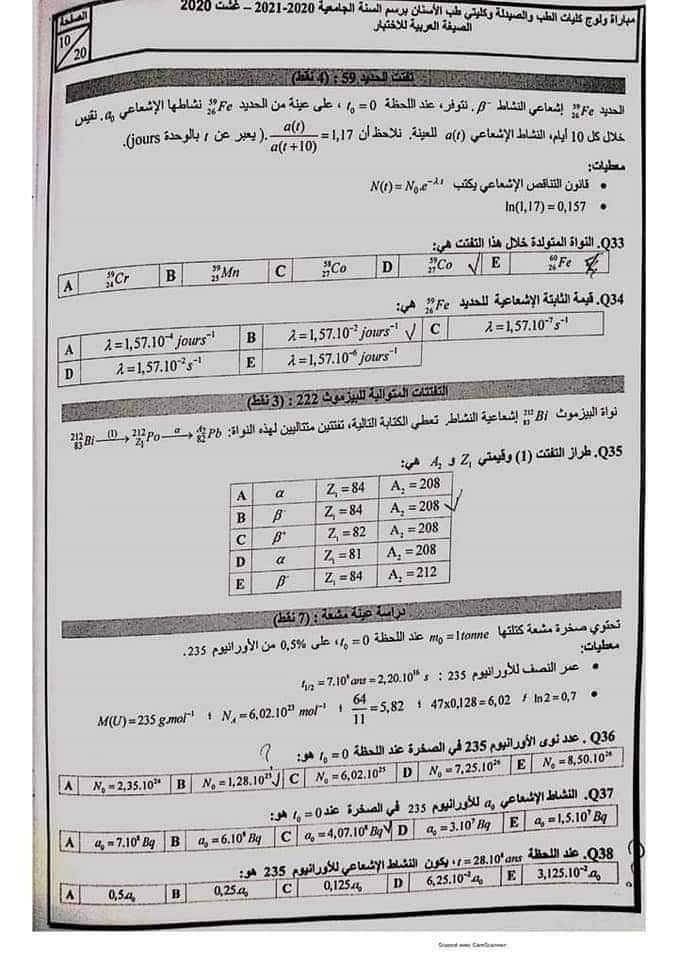 مباراة ولوج كليات الطب والصيدلة وكليتي طب الأسنان برسم السنة الجامعية 2020-2021 – غشت 2020
الصيغة العربية للاختبار
الصفحة
10
20
تفتت الحديد 59 : (4 نقط)
الحديد ⁵⁹₂₆Fe إشعاعي النشاط β⁻. نتوفر، عند اللحظة t₀ = 0 ، على عينة من الحديد ⁵⁹₂₆Fe نشاطها الإشعاعي a₀. نقيس
خلال كل 10 أيام، النشاط الإشعاعي a(t) للعينة. نلاحظ أن a(t)/a(t+10) = 1,17 .( يعبر عن t بالوحدة jours).
معطيات:
• قانون التناقص الإشعاعي يكتب N(t) = N₀.e^(-λt)
• ln(1,17) = 0,157
Q33. النواة المتولدة خلال هذا التفتت هي:
A ⁵⁹₂₄Cr B ⁵⁹₂₅Mn C ⁵⁸₂₇Co D ⁵⁹₂₇Co E ⁶⁰₂₆Fe
Q34. قيمة الثابتة الإشعاعية للحديد ⁵⁹₂₆Fe هي:
A λ = 1,57.10⁻⁴ jours⁻¹ B λ = 1,57.10⁻² jours⁻¹ C λ = 1,57.10⁻⁷ s⁻¹
D λ = 1,57.10⁻² s⁻¹ E λ = 1,57.10⁻⁶ jours⁻¹
التفتتات المتوالية للبيزموث 222 : (3 نقط)
نواة البيزموث ²¹²₈₃Bi إشعاعية النشاط. تعطي الكتابة التالية، تفتتين متتاليين لهذه النواة: ²¹²₈₃Bi —(1)→ ²¹²_Z₁Po —α→ ^A₂₈₂Pb
Q35. طراز التفتت (1) وقيمتي Z₁ و A₂ هي:
A α Z₁ = 84 A₂ = 208
B β⁻ Z₁ = 84 A₂ = 208
C β⁺ Z₁ = 82 A₂ = 208
D α Z₁ = 81 A₂ = 208
E β⁻ Z₁ = 84 A₂ = 212
دراسة عينة مشعة : (7 نقط)
تحتوي صخرة مشعة كتلتها m₀ = 1tonne عند اللحظة t₀ = 0، على 0,5% من الأورانيوم 235.
معطيات:
• عمر النصف للأورانيوم 235 : t₁/₂ = 7.10⁸ ans = 2,20.10¹⁶ s
• M(U) = 235 g.mol⁻¹ ؛ N_A = 6,02.10²³ mol⁻¹ ؛ 64/11 = 5,82 ؛ 47x0,128 = 6,02 ؛ ln2 = 0,7
Q36 . عدد نوى الأورانيوم 235 في الصخرة عند اللحظة t₀ = 0 هو:
?
A N₀ = 2,35.10²⁴ B N₀ = 1,28.10²⁵ C N₀ = 6,02.10²⁵ D N₀ = 7,25.10²⁶ E N₀ = 8,50.10²⁶
Q37. النشاط الإشعاعي a₀ للأورانيوم 235 في الصخرة عند t₀ = 0 هو:
A a₀ = 7.10⁸ Bq B a₀ = 6.10⁸ Bq C a₀ = 4,07.10⁸ Bq D a₀ = 3.10⁷ Bq E a₀ = 1,5.10⁷ Bq
Q38. عند اللحظة t = 28.10⁸ ans، يكون النشاط الإشعاعي للأورانيوم 235 هو:
A 0,5.a₀ B 0,25.a₀ C 0,125.a₀ D 6,25.10⁻².a₀ E 3,125.10⁻².a₀
Scanned with CamScanner